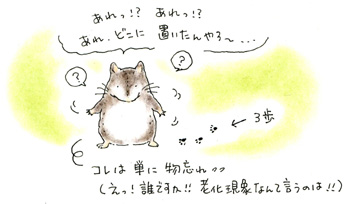 あれっ!? あれっ!?
あれ、どこに 置いたんやろ〜...
?
?
← 3歩
コレは 単に 物忘れ〃
(えっ!誰ですか!! 老化現象なんて言うのは!!)